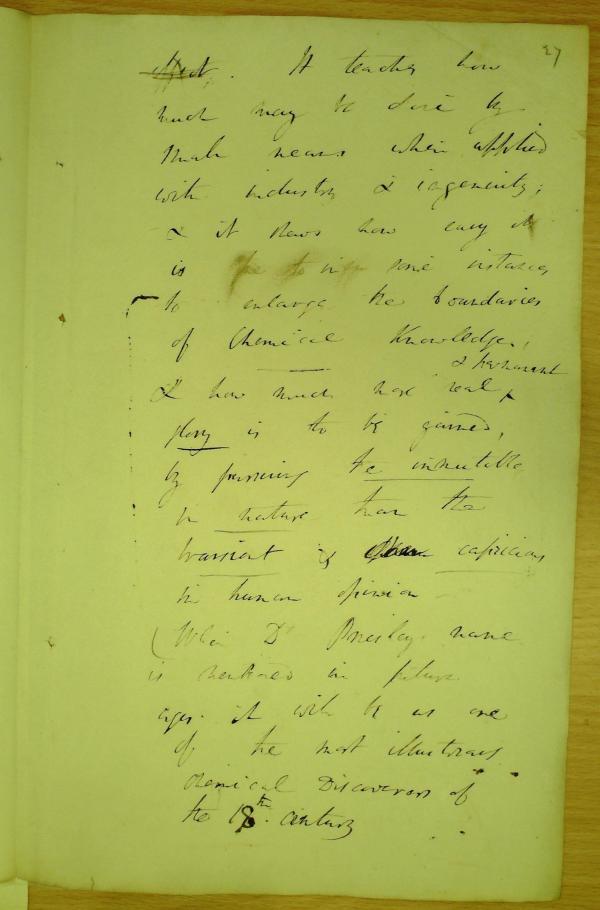 27
effect. It teaches how
much may be done by
small means when applied
with industry & ingenuity;
& it shews how easy it
is in some instances
to enlarge the boundaries
of Chemical Knowledge,
& permanent
& how much more real
glory is to be gained,
by pursuing the immutable
in nature than the
transient & capricious
in human opinion
(When Dr Priestley name
is mentioned in future
ages. it will be as one
of the most illustrious
chemical Discoverers of
the 18th. century